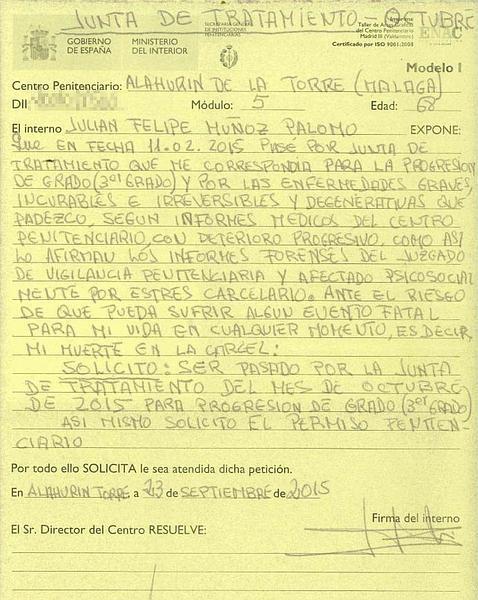 JUNTA DE TRATAMIENTO OCTUBRE
GOBIERNO DE ESPAÑA
MINISTERIO DEL INTERIOR
SECRETARÍA GENERAL DE INSTITUCIONES PENITENCIARIAS
Taller de Artes Gráficas
del Centro Penitenciario
Madrid III (Valdemoro)
Certificado por ISO 9001:2008
ENAC
Modelo I
Centro Penitenciario: ALAHURIN DE LA TORRE (MALAGA)
Módulo: 5 Edad: 68
El interno JULIAN FELIPE MUÑOZ PALOMO EXPONE:
QUE EN FECHA 11.02.2015 PASÉ POR JUNTA DE
TRATAMIENTO QUE ME CORRESPONDIA PARA LA PROGRESION
DE GRADO (3er GRADO) Y POR LAS ENFERMEDADES GRAVES,
INCURABLES E IRREVERSIBLES Y DEGENERATIVAS QUE
PADEZCO, SEGUN INFORMES MEDICOS DEL CENTRO
PENITENCIARIO, CON DETERIORO PROGRESIVO, COMO ASI
LO AFIRMAN LOS INFORMES FORENSES DEL JUZGADO
DE VIGILANCIA PENITENCIARIA Y AFECTADO PSICOSOCIAL
MENTE POR ESTRES CARCELARIO. ANTE EL RIESGO
DE QUE PUEDA SUFRIR ALGUN EVENTO FATAL
PARA MI VIDA EN CUALQUIER MOMENTO, ES DECIR,
MI MUERTE EN LA CARCEL:
SOLICITO: SER PASADO POR LA JUNTA
DE TRATAMIENTO DEL MES DE OCTUBRE
DE 2015 PARA PROGRESION DE GRADO (3er GRADO)
ASI MISMO SOLICITO EL PERMISO PENITEN-
CIARIO
Por todo ello SOLICITA le sea atendida dicha petición.
En ALAHURIN TORRE, a 23 de SEPTIEMBRE de 2015
Firma del interno
El Sr. Director del Centro RESUELVE: